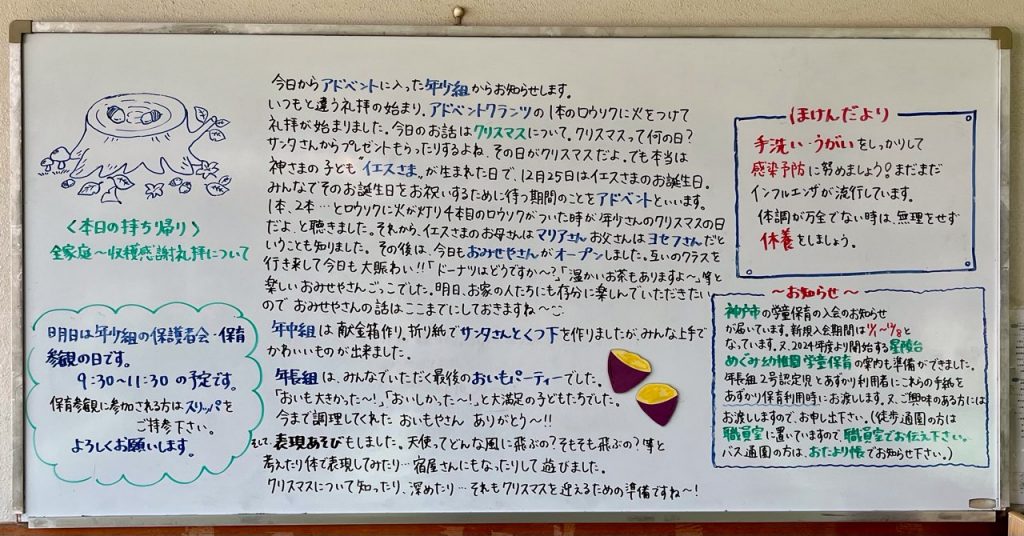 今日からアドベントに入った年少組からお知らせします。
いつもと違う礼拝の始まり、アドベントクランツの1本のロウソクに火をつけて
礼拝が始まりました。今日のお話はクリスマスについて。クリスマスって何の日?
サンタさんからプレゼントもらったりするよね、その日がクリスマスだよ。でも本当は
神さまの子ども"イエスさま"が生まれた日で、12月25日はイエスさまのお誕生日。
みんなでそのお誕生日をお祝いするために待つ期間のことをアドベントといいます。
1本、2本…とロウソクに火が灯り4本目のロウソクがついた時が年少さんのクリスマスの日
だよ と聴きました。それから、イエスさまのお母さんはマリアさんお父さんはヨセフさんだと
いうことも知りました。その後は、今日もおみせやさんがオープンしました。互いのクラスを
行き来して今日も大賑わい!!「ドーナツはどうですか〜?」「温かいお茶もありますよ〜」等と
楽しいおみせやさんごっこでした。明日、お家の人たちにも存分に楽しんでいただきたい
ので おみせやさんの話はここまでにしておきますね〜
年中組は献金箱作り。折り紙でサンタさんとくつ下を作りましたが、みんな上手で
かわいいものが出来ました。
年長組は、みんなでいただく最後のおいもパーティーでした。
「おいも大きかった〜!」「おいしかった〜!」と大満足の子どもたちでした。
今まで調理してくれた おいもやさん ありがとう〜!!
そして、表現あそびもしました。天使ってどんな風に飛ぶの?そもそも飛ぶの?等と
考えたり体で表現してみたり…宿屋さんにもなったりして遊びました。
クリスマスについて知ったり、深めたり…それもクリスマスを迎えるための準備ですね〜!
〈本日の持ち帰り〉
全家庭〜収穫感謝礼拝について
明日は年少組の保護者会・保育
参観の日です。
9:30〜11:30 の予定です。
保育参観に参加される方はスリッパを
ご持参下さい。
よろしくお願いします。
ほけんだより
手洗い・うがいをしっかりして
感染予防に努めましょう!まだまだ
インフルエンザが流行しています。
体調が万全でない時は、無理をせず
休養をしましょう。
〜お知らせ〜
神戸市の学童保育の入会のお知らせ
が届いています。新規入会期間は
なっています。又、2024年度より開始する星陵台
めぐみ幼稚園学童保育の案内も準備ができました。
年長組2号認定児とあずかり利用者にこれらの手紙を
あずかり保育利用時にお渡します。又、ご興味のある方には
お渡ししますので、お申し出下さい。(徒歩通園の方は
職員室に置いていますので、職員室でお伝え下さい。
バス通園の方は、おたより帳でお知らせ下さい。)